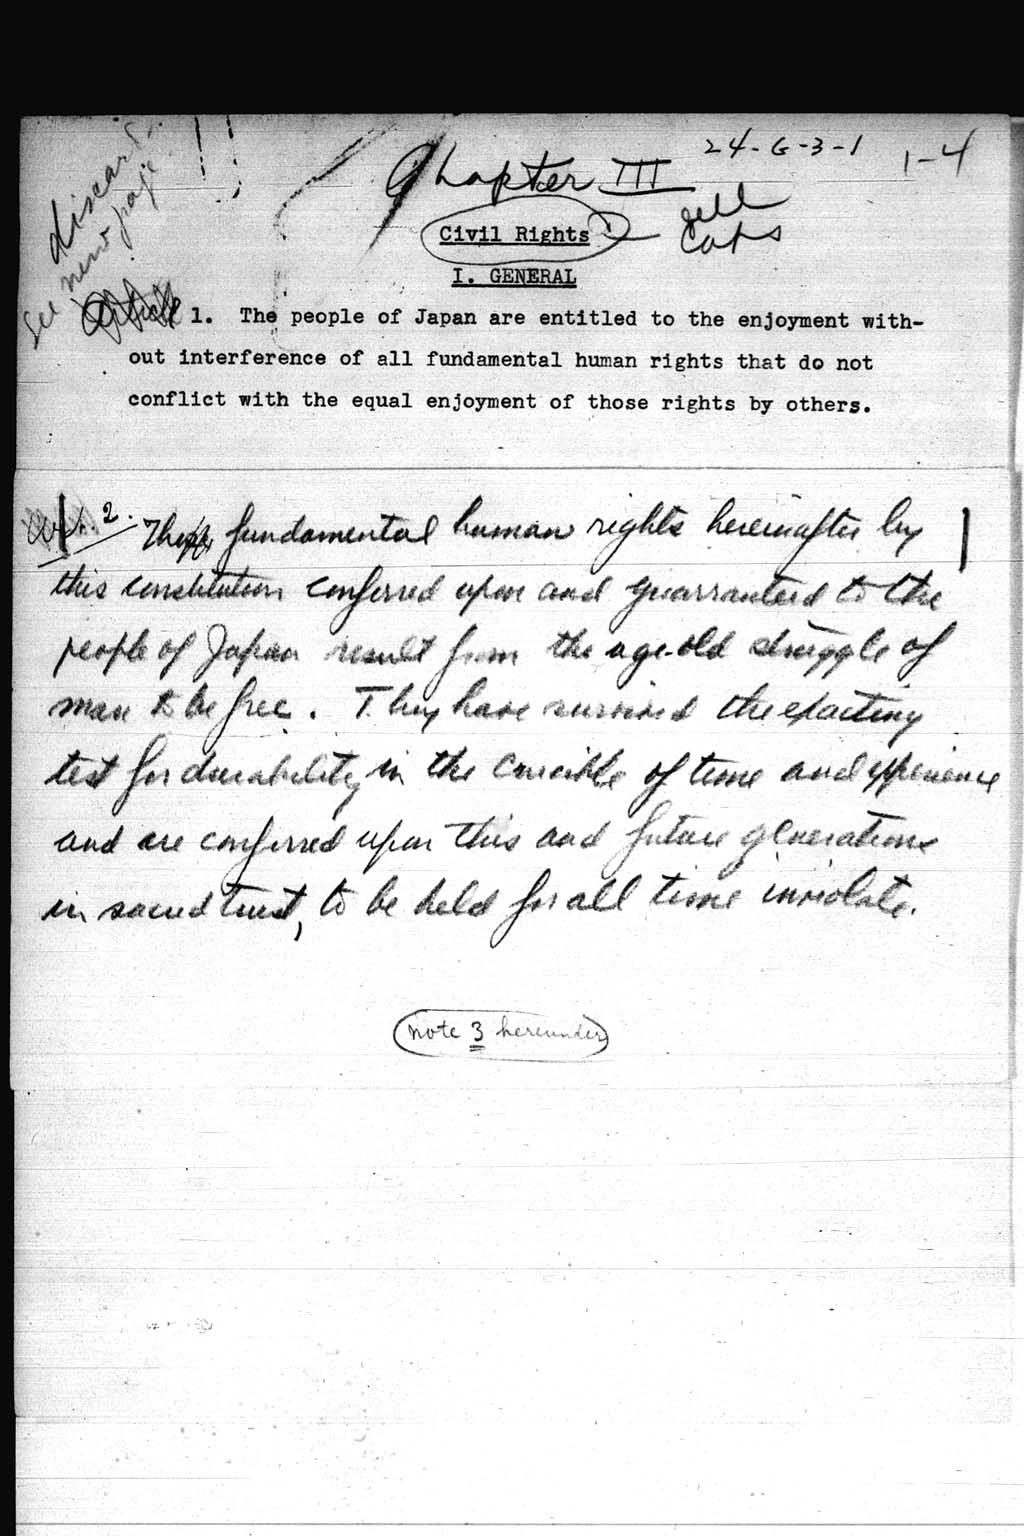 24-G-3-1
1-4
discard
see new page
Chapter III
Civil Rights
all
Caps
I. GENERAL
Article 1. The people of Japan are entitled to the enjoyment with-
out interference of all fundamental human rights that do not
conflict with the equal enjoyment of those rights by others.
2. The fundamental human rights hereinafter by
this constitution conferred upon and guarranteed to the
people of Japan result from the age-old struggle of
man to be free. They have survived the exacting
test for durability in the crucible of time and experience
and are conferred upon this and future generations
in sacred trust, to be held for all time inviolate.
note 3 hereunder